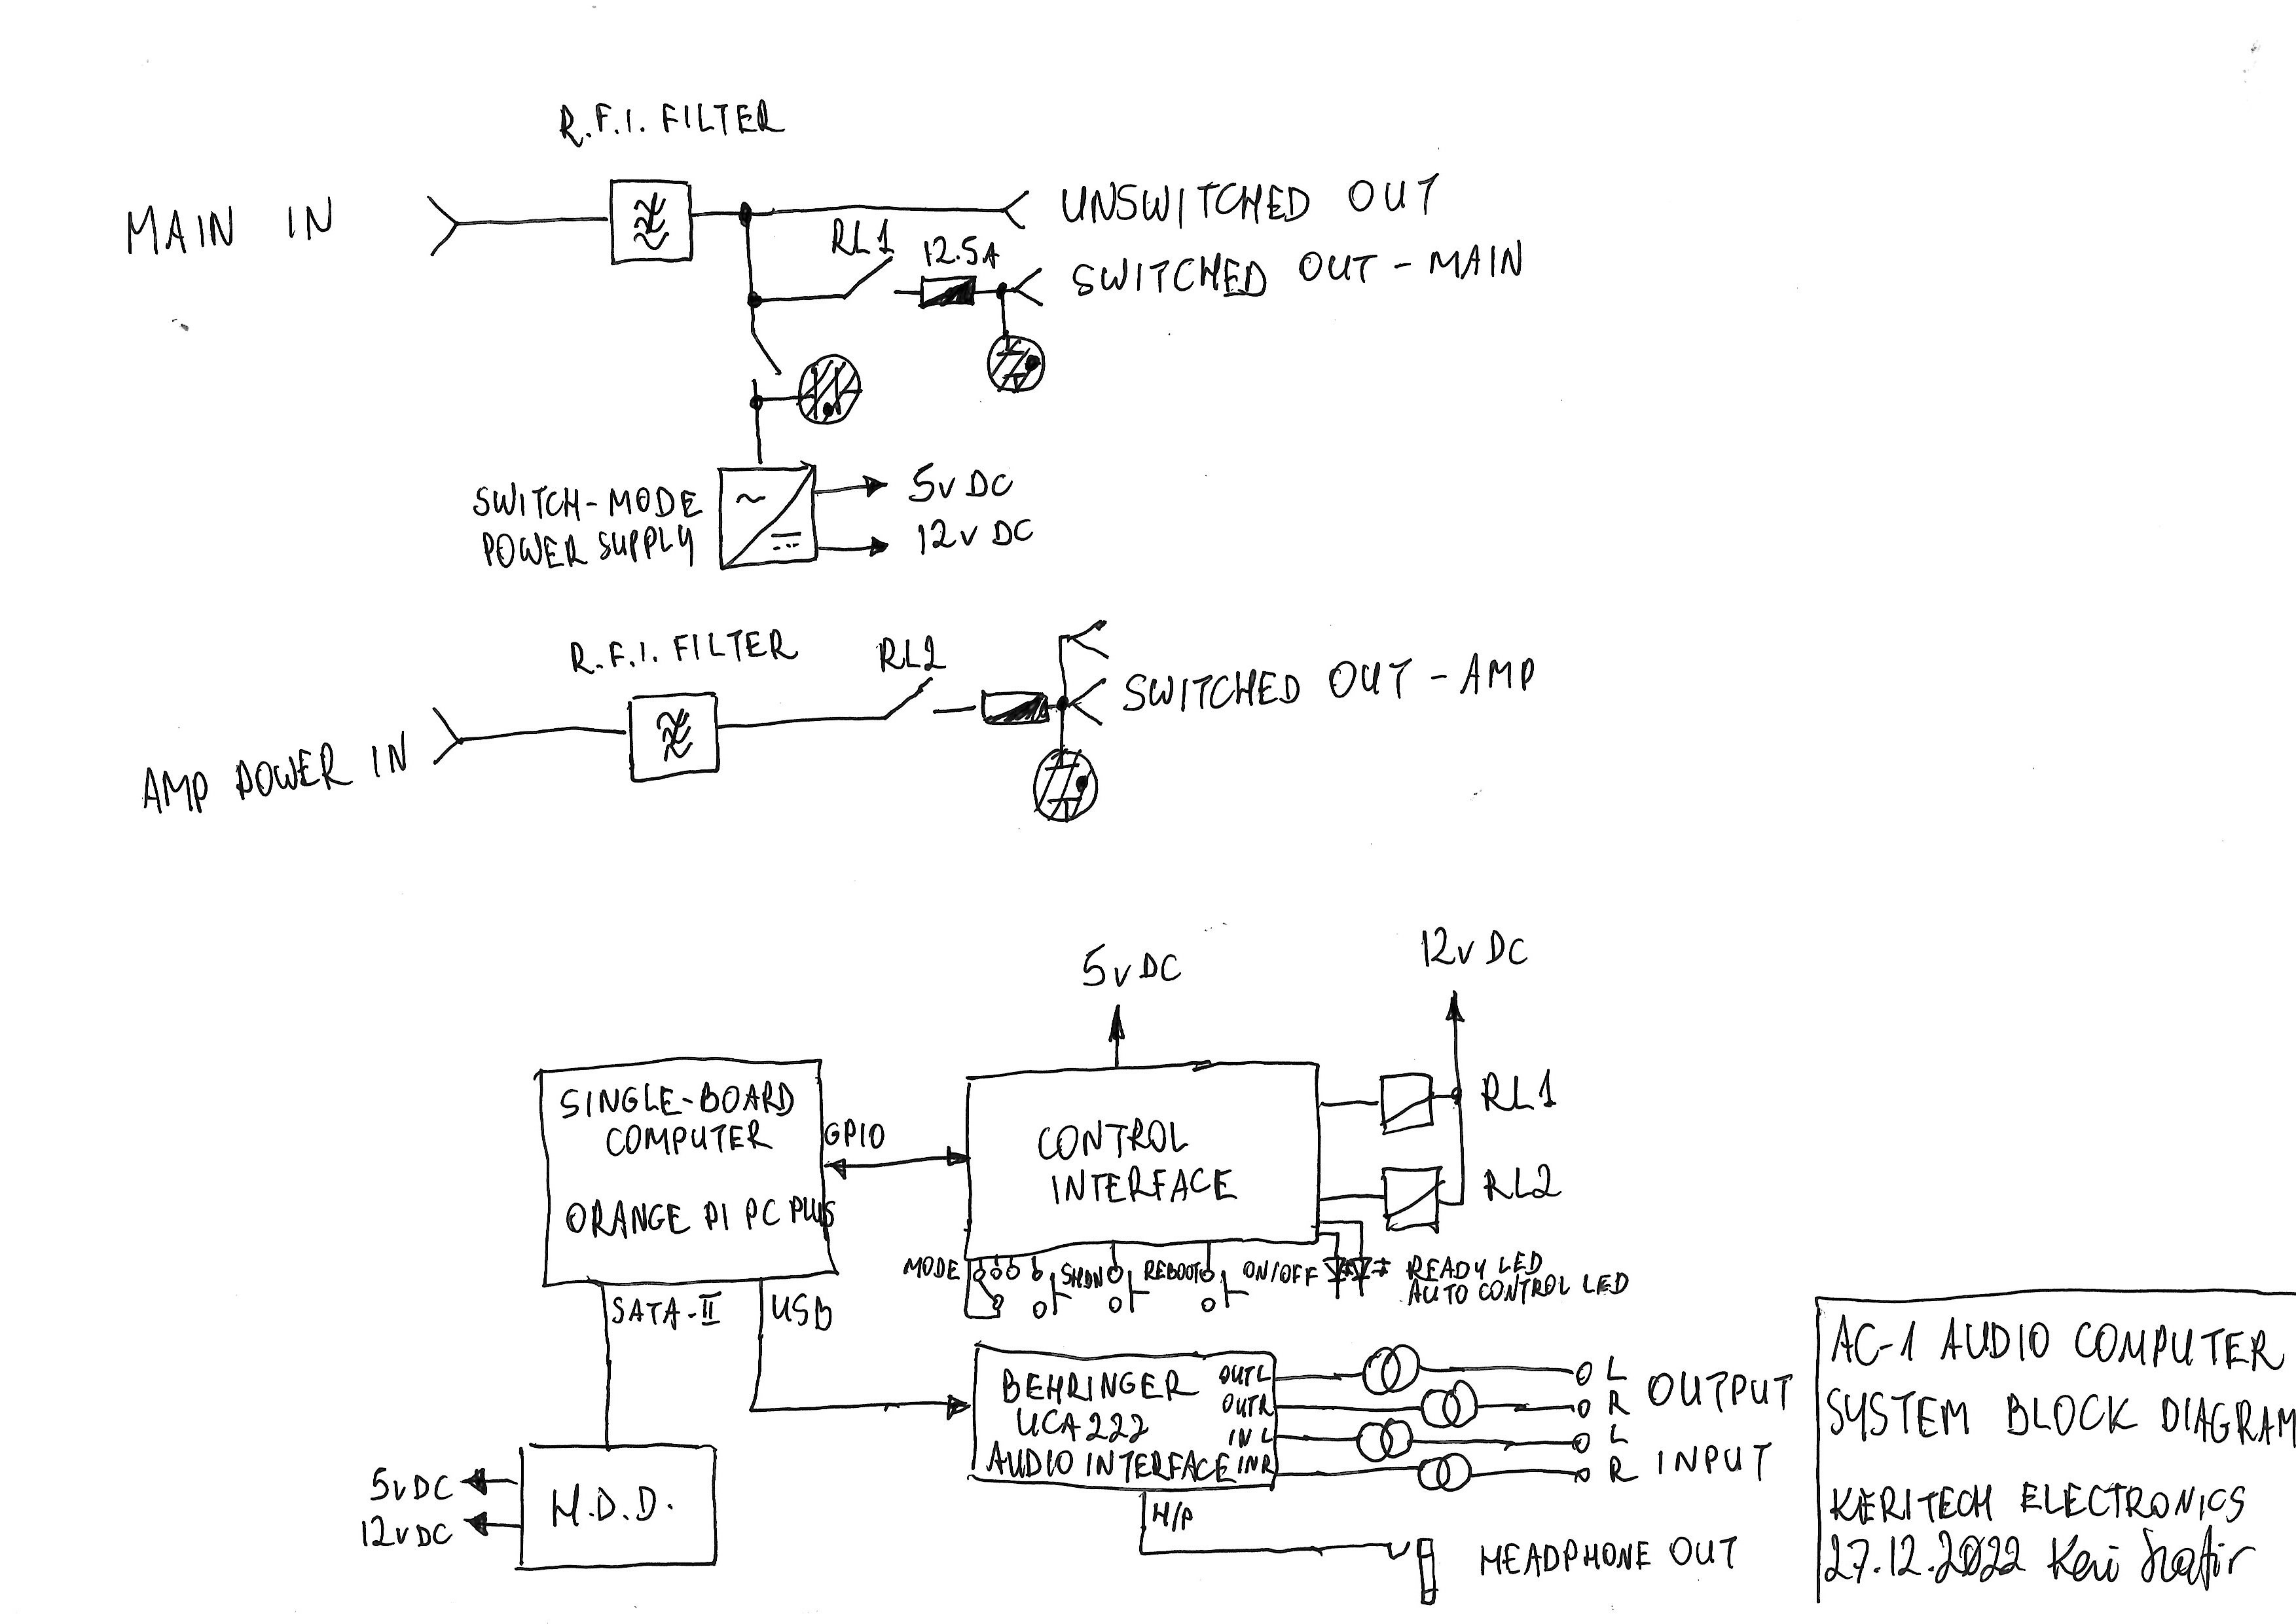 R.F.I. FILTER
MAIN IN
UNSWITCHED OUT
RL1
12.5A
SWITCHED OUT - MAIN
SWITCH-MODE
POWER SUPPLY
5V DC
12V DC
R.F.I. FILTER
RL2
SWITCHED OUT - AMP
AMP POWER IN
5V DC
12V DC
SINGLE-BOARD
COMPUTER
ORANGE PI PC PLUS
GPIO
CONTROL
INTERFACE
RL1
RL2
MODE
SHDN
REBOOT
ON/OFF
READY LED
AUTO CONTROL LED
SATA-II
USB
BEHRINGER
UCA222
AUDIO INTERFACE
OUTL
OUTR
IN L
INR
L
R
OUTPUT
L
R
INPUT
H/P
HEADPHONE OUT
5V DC
12V DC
H.D.D.
AC-1 AUDIO COMPUTER
SYSTEM BLOCK DIAGRAM
KERITECH ELECTRONICS
27.12.2022 Keri Szafir